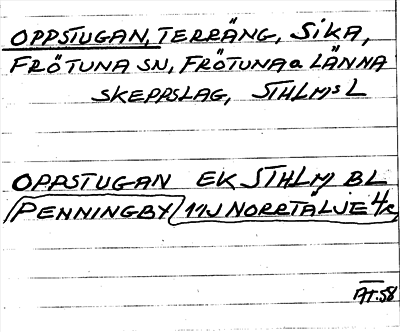 OPPSTUGAN, TERRÄNG, SIKA,
FRÖTUNA SN, FRÖTUNA o LÄNNA
SKEPPSLAG, STHLMs L
OPPSTUGAN EK STHLM BL
PENNINGBY 11J NORRTÄLJE 4/c
58